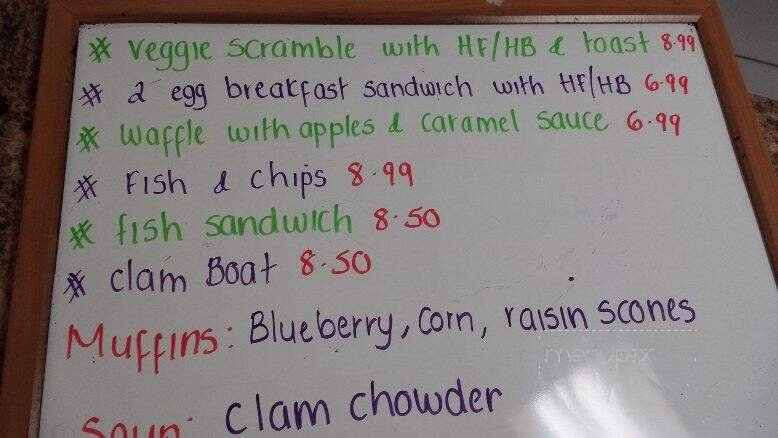 * Veggie scramble with HF/HB & toast 8.99
* 2 egg breakfast sandwich with HF/HB 6.99
* Waffle with apples & caramel sauce 6.99
* Fish & chips 8.99
* fish sandwich 8.50
* clam Boat 8.50
Muffins: Blueberry, corn, raisin scones
menupix
Soup: clam chowder